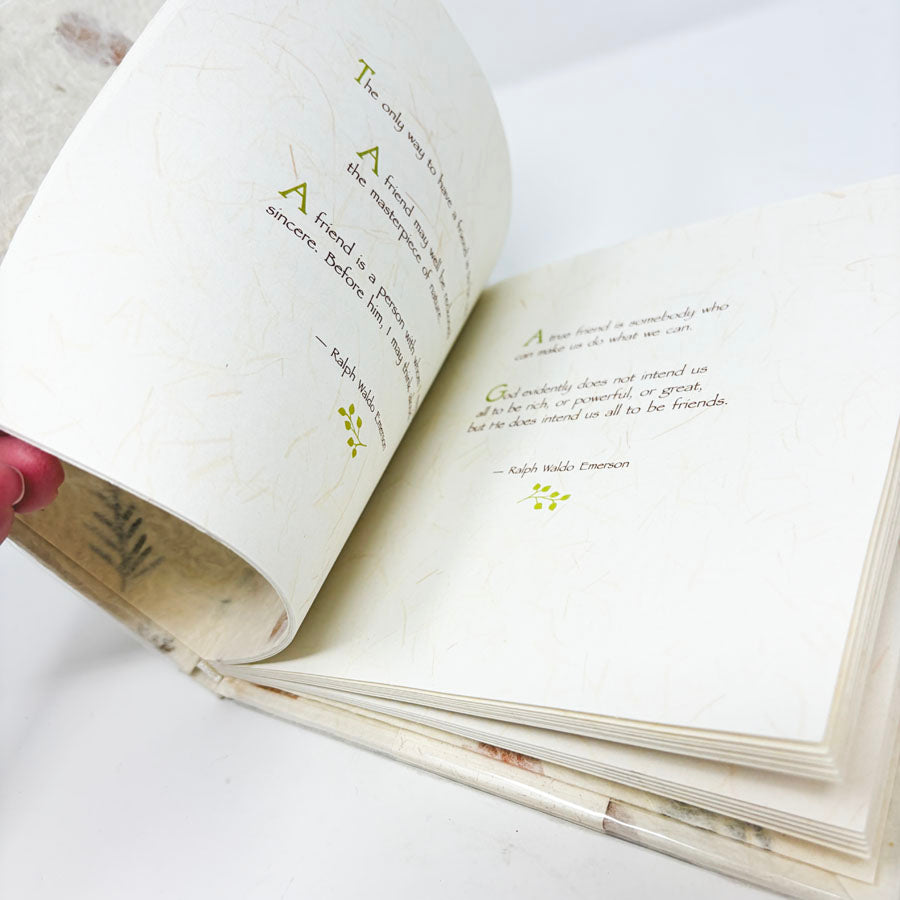 The only way to have a friend is
A friend may well be reckoned
the masterpiece of nature.
A friend is a person with whom
sincere. Before him, I may think
— Ralph Waldo Emerson
A true friend is somebody who
can make us do what we can.
God evidently does not intend us
all to be rich, or powerful, or great,
but He does intend us all to be friends.
— Ralph Waldo Emerson